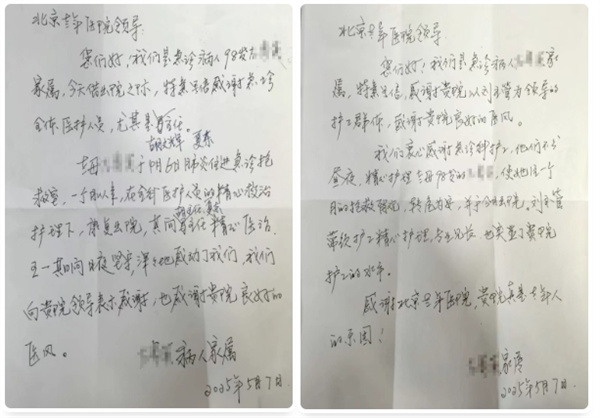 北京老年医院领导:
您们好,我们是急诊病人98岁志
家属,今天借出院之际,特来呈信感谢急诊
全体医护人员,尤其是主任
夏东
老母 于4月6日肺炎住进急诊抢
救室,一个月以来,在全针医护人员的精心救治
护理下,康复出院,其间 主任精心医治,
地感动了我们,我们
向贵院领导表示感谢,也感谢贵院良好的
医风。
病人家属
2025年5月7日
北京老年医院领导
您们好!我们是急诊病人 家
属,特来呈信,感谢贵院以刘主管为领导的
护工群体,感谢贵院良好的医风。
我们衷心感谢急诊科护工,他们不分
昼夜,精心护理老母98岁的 ,使她经一个
月的抢救 ,转危为安,并于今出院。刘主管
带领护工精心护理, ,也 了贵院
护工的水平。
感谢北京老年医院,贵院真是老年人
的乐园!
家属
2025年5月7日